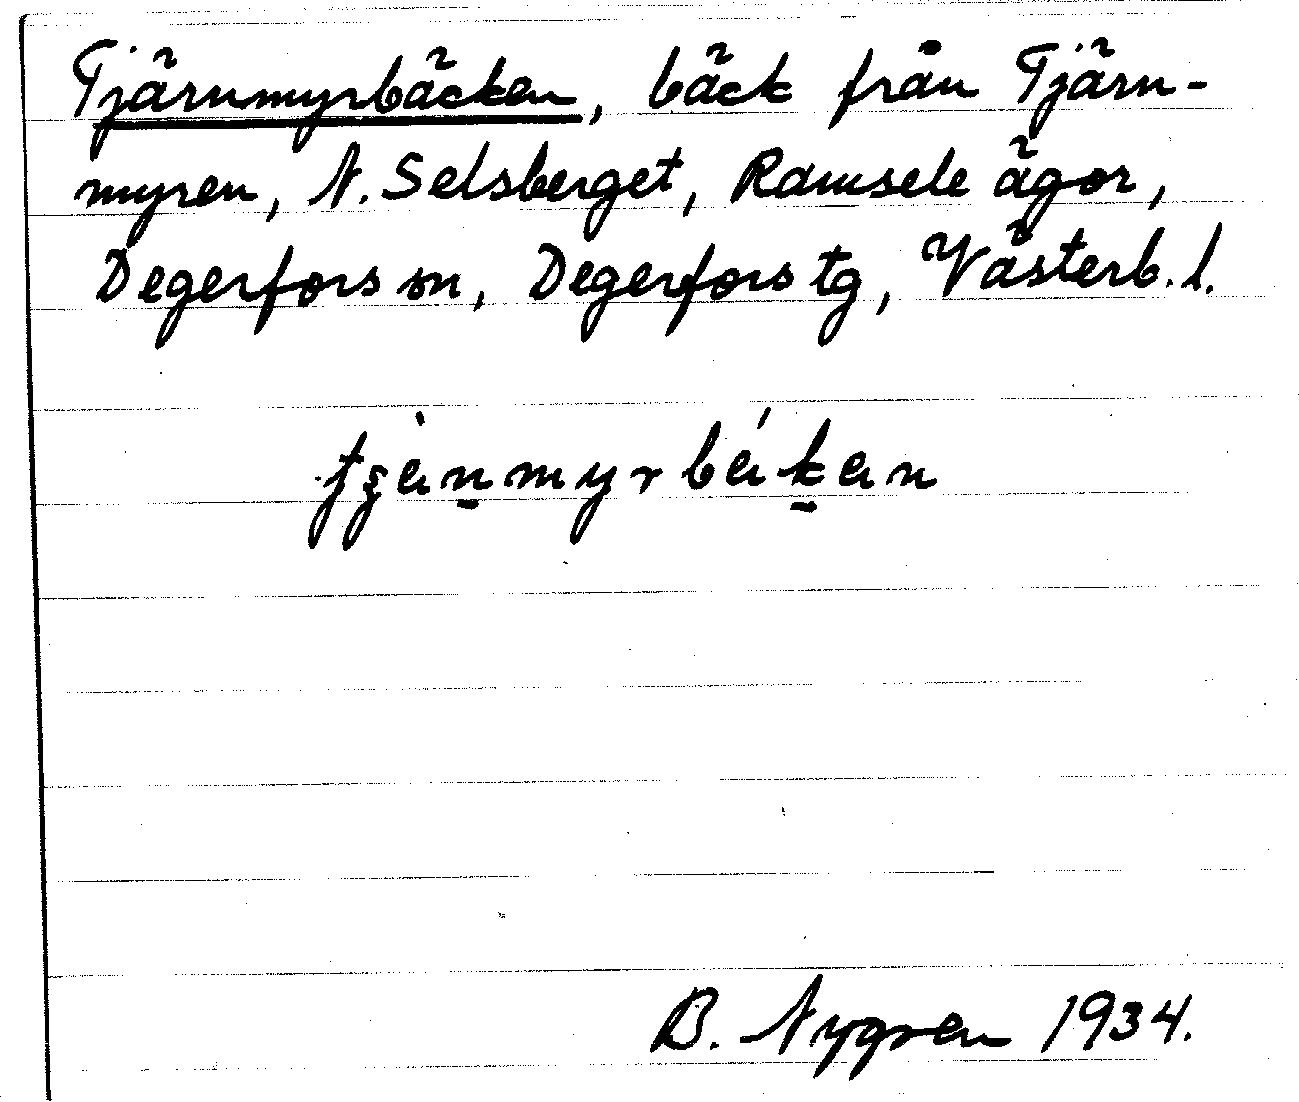 Tjärnmyrbäcken, bäck från Tjärn-
myren, N. Selsberget, Ramsele ägor,
Degerfors sn, Degerfors tg, Västerb. l.
B. Nygren 1934.